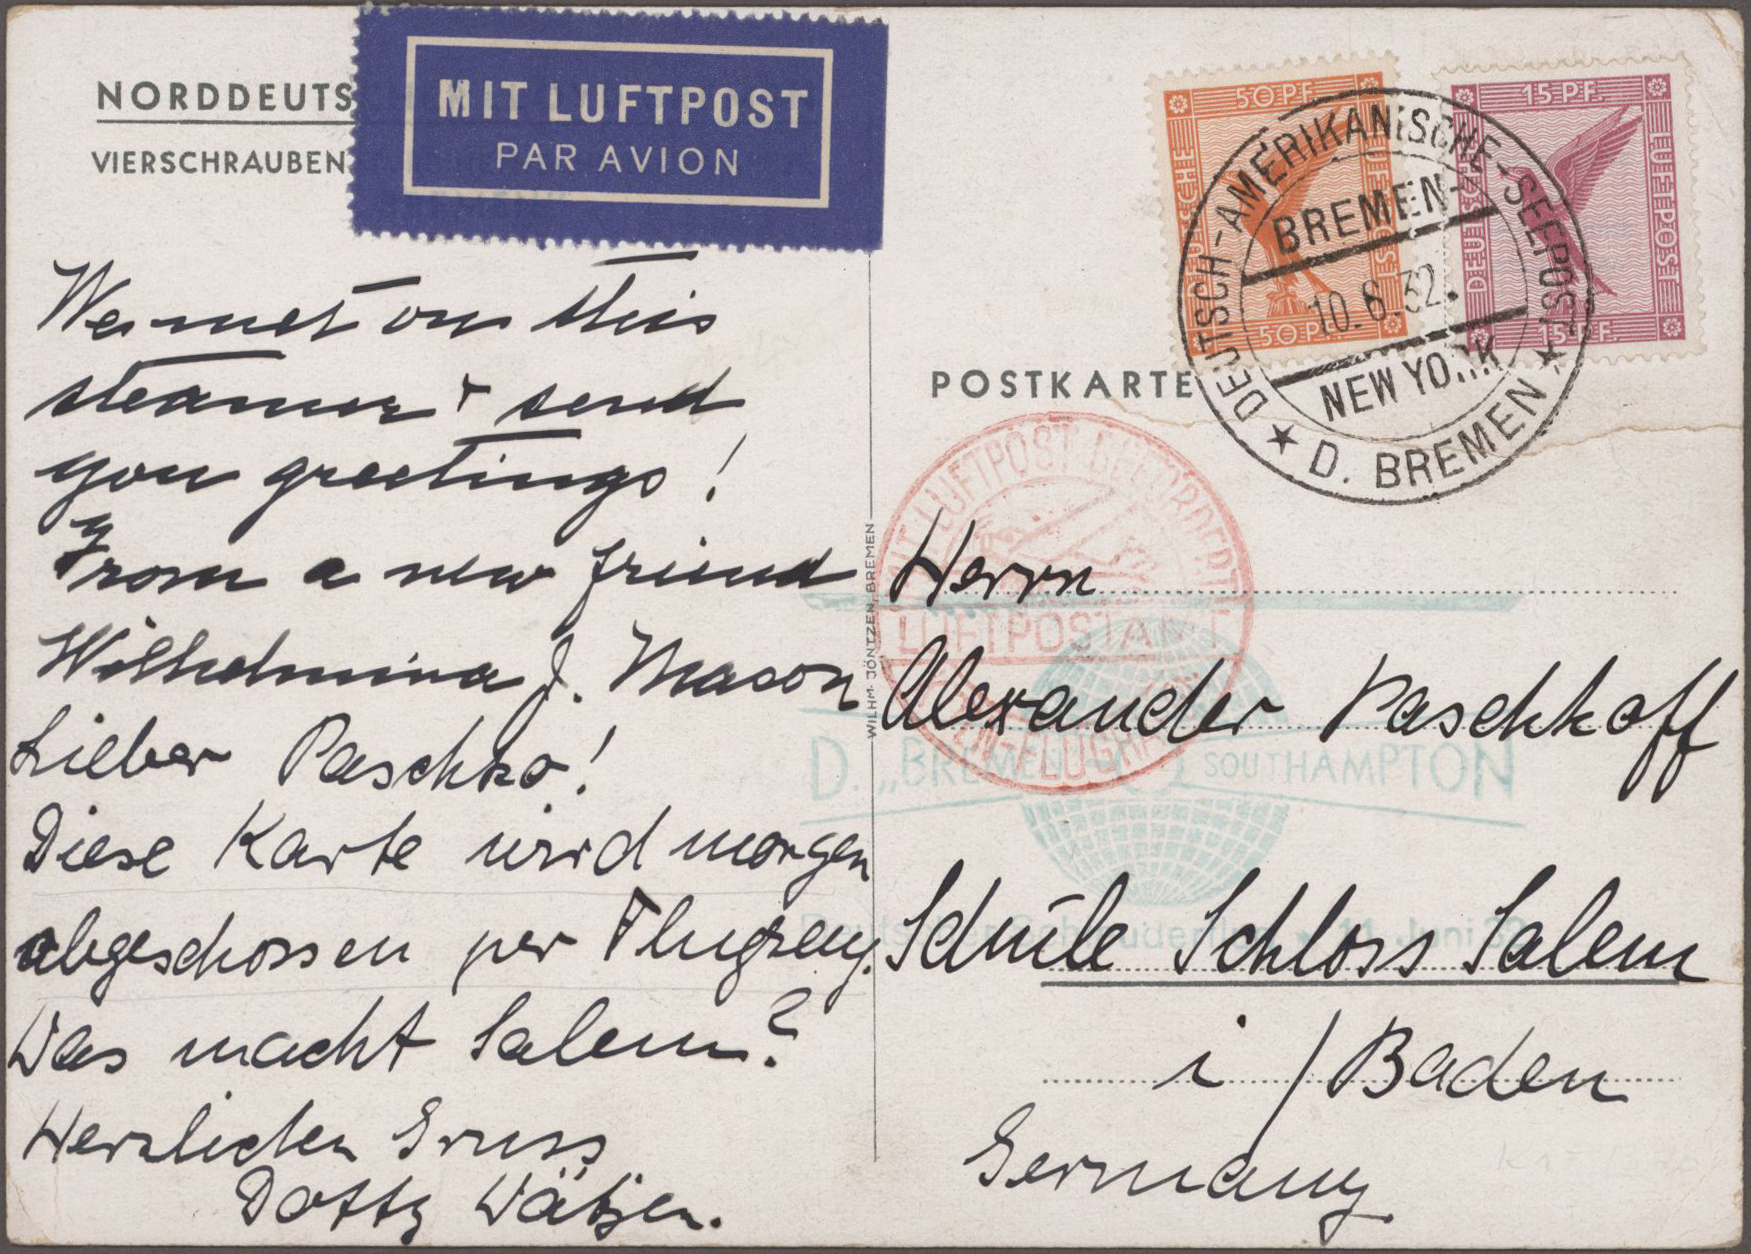 NORDDEUTS
VIERSCHRAUBEN
MIT LUFTPOST
PAR AVION
50 PF.
15 PF.
DEUTSCHE LUFTPOST
DEUTSCHE LUFTPOST
50 PF.
15 PF.
DEUTSCH-AMERIKANISCHE-SEEPOST
BREMEN-
10.6.32.
NEW YORK
★ D. BREMEN ★
We met on this
steamer & send
you greetings!
From a new friend
Wilhelmina J. Mason
Lieber Paschko!
Diese Karte wird morgen
abgeschossen per Flugzeug.
Was macht Salem?
Herzlichen Gruss
Dotty
WILHM. JÖNTZEN, BREMEN
POSTKARTE
MIT LUFTPOST BEFÖRDERT
LUFTPOSTAMT
D. „BREMEN" - SOUTHAMPTON
Deutscher Schleuderflug ★ 11. Juni 32
Herrn
Alexander Paschkoff
Schule Schloss Salem
i/Baden
Germany